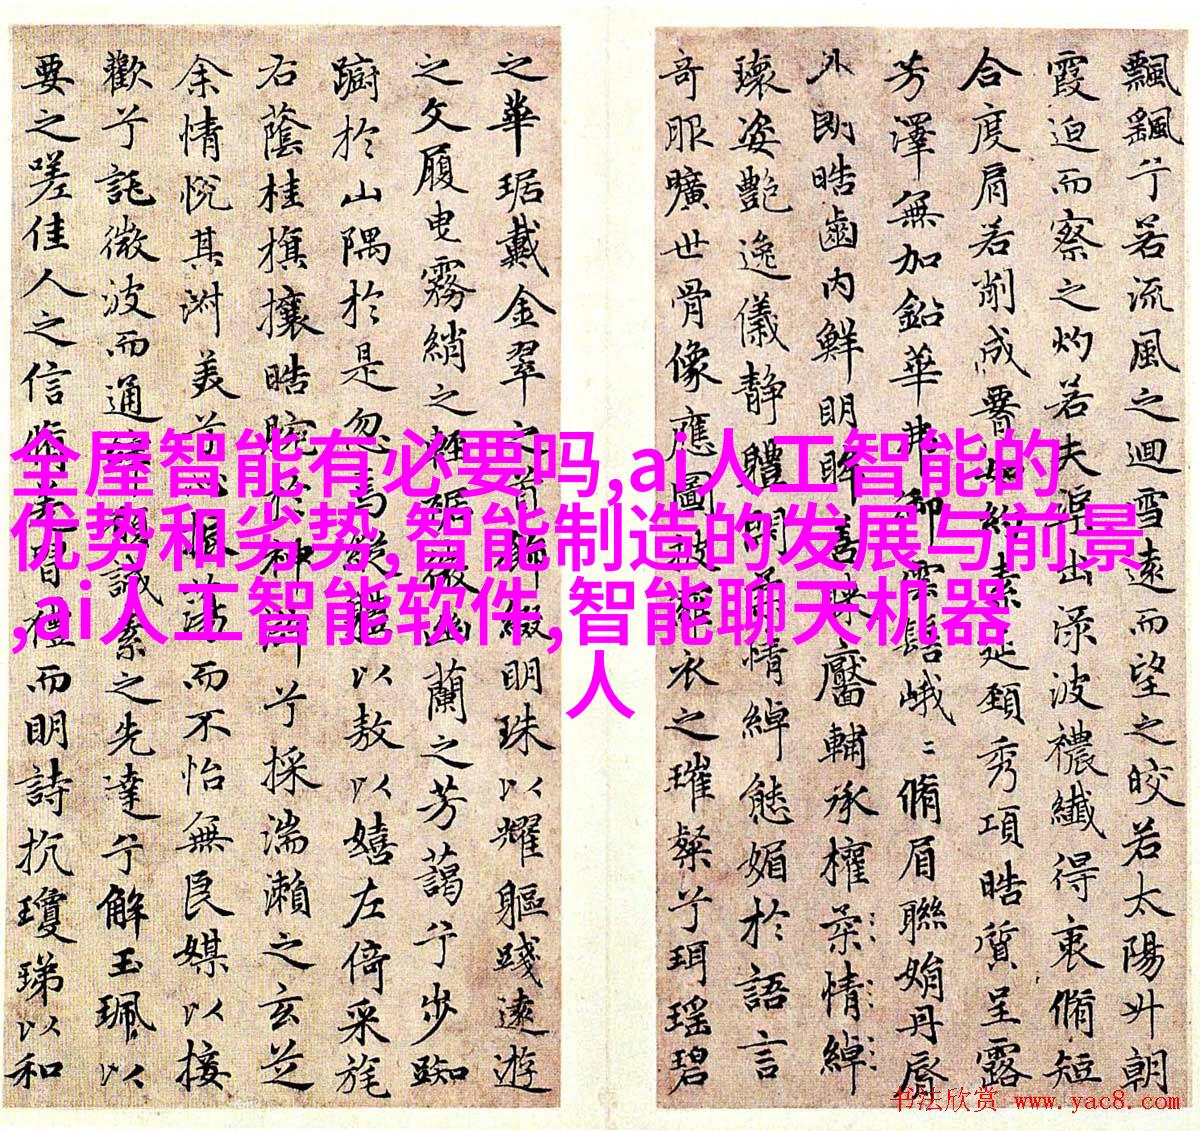 飄飖兮若流風之迴雪遠而望之皎若太陽升朝
霞迫而察之灼若夫渠出渌波襛纖得衷脩短
合度肩若削成腰如約素延頸秀項皓質呈露
芳澤無加鉛華弗御雲髻峨〻脩眉聯娟丹脣
外朗皓齒内鮮明眸善睞靨輔承權柔情綽
瓌姿艷逸儀静體閑柔情綽態媚於語言
奇服曠世骨像應圖披羅衣之璀粲兮珥瑶碧
之華琚戴金翠之首飾綴明珠以耀軀踐遠遊
之文履曳霧綃之輕裾微幽蘭之芳藹兮步踟
躕於山隅於是忽焉縱體以敖以嬉左倚采旄
右蔭桂旗攘皓腕於神滸兮採湍瀨之玄芝
余情悦其淑美兮心振蕩而不怡無良媒以接
歡兮託微波而通辭願誠素之先達兮解玉珮以
要之嗟佳人之信脩羌習禮而明詩抗瓊珶以和
全屋智能有必要吗,ai人工智能的
优势和劣势,智能制造的发展与前景
,ai人工智能软件,智能聊天机器
人
书法欣赏 www.yac8.com